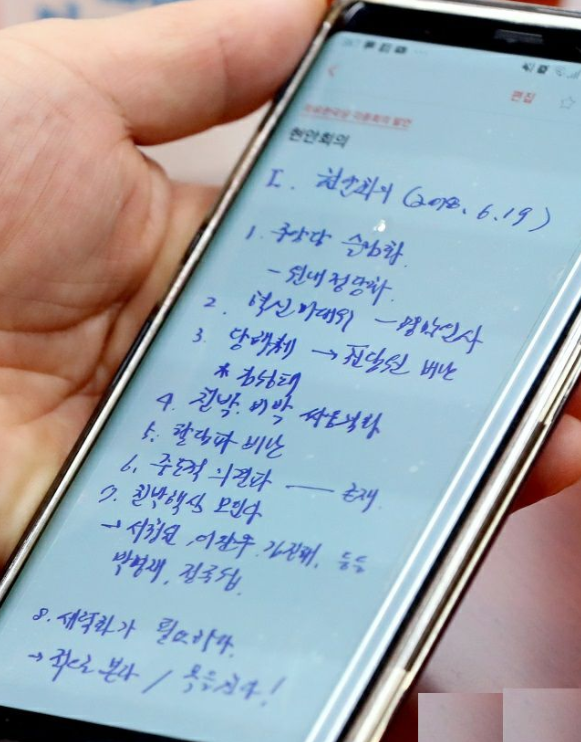 편집
현안회의
I. 현안회의 (2018. 6. 19)
1. 중앙당 슬림화.
- 원내정당화.
2. 혁신비대위 -
3. 당해체 → 전당원 비난
*
4. 친박, 비박 싸움격화
5. 탈당파 비난
6. 중도적 의견파 —— 존재.
7. 친박핵심 모인다
→ 서청원, 이장우, 김진태, 등등
박명재, 정종섭.
8. 세력화가 필요하다.
→ 적으로 본다 / 목을 친다!